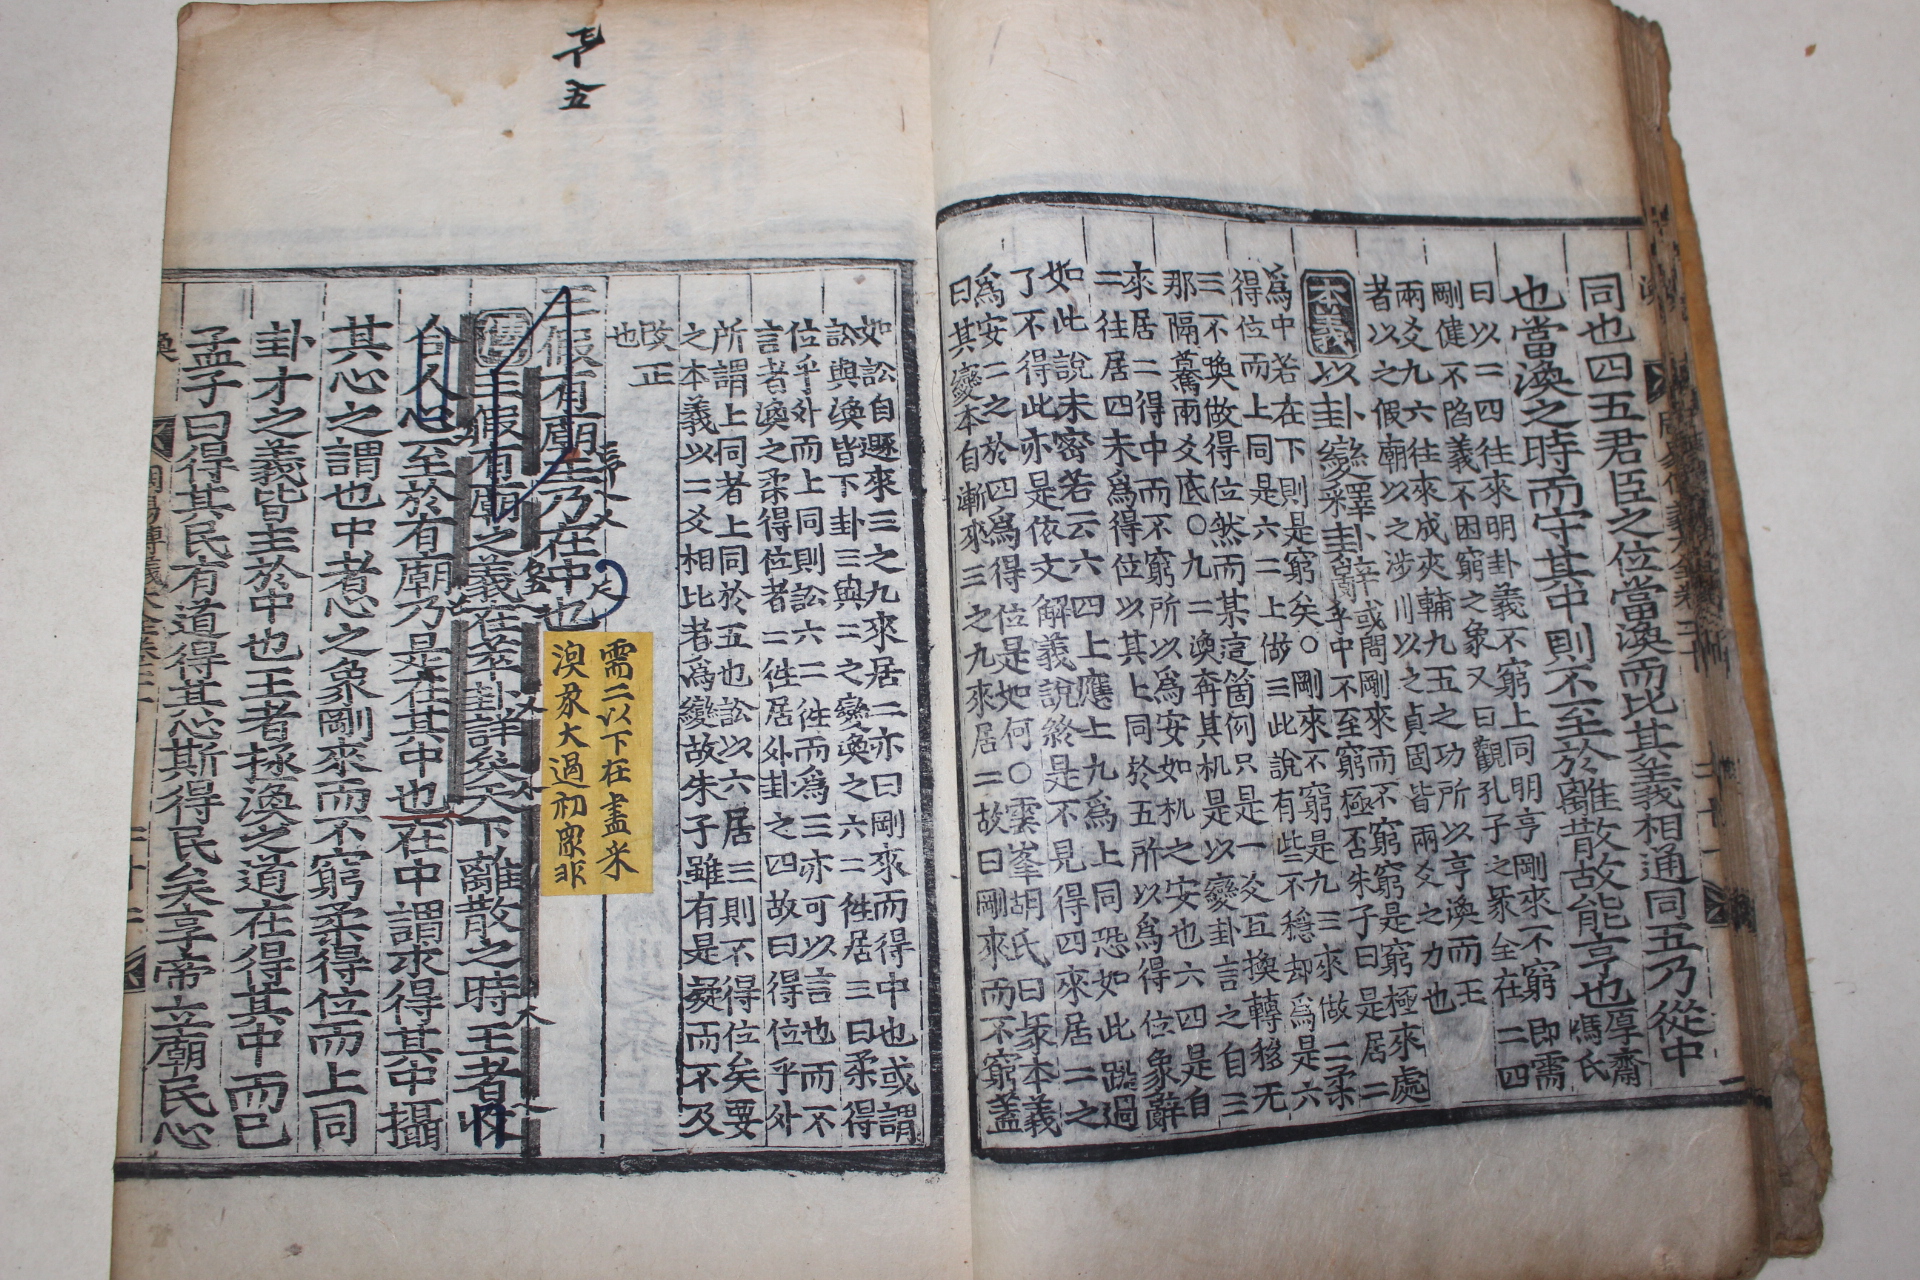 同也四五君臣之位當渙而比其義相通同五乃從中
也當渙之時而守其中則不至於離散故能亨也厚齋
馮氏
曰以二四往來明卦義不窮上同明亨剛來不窮即需
剛健不陷義不困窮之象又曰觀孔子之彖全在二四
兩爻九六往來成夾輔九五之功所以亨渙而王
者以之假廟以之涉川以之貞固皆兩爻之力也
本義以卦變釋卦辭或問剛來而不窮窮是窮極來處
乎中不至窮極否朱子曰是居二
爲中若在下則是窮矣○剛來不窮是九三來做二柔
得位而上同是六二上做三此說有些不穩却爲是六
三不喚做得位然而某這箇例只是一爻互換轉移无
那隔驀兩爻底○九二渙奔其机是以變卦言之自三
來居二得中而不窮所以爲安如机之安也六四是自
二往居四未爲得位以其上同於五所以爲得位象辭
如此說未密若云六四上應上九爲上同恐如此跳過
了不得此亦是依文解義說終是不見得四來居二之
爲安二之於四爲得位是如何○雲峯胡氏曰彖本義
曰其變本自漸來三之九來居二故曰剛來而不窮蓋
如訟自遯來三之九來居二亦曰剛來而得中也或謂
訟與渙皆下卦三與二之變渙之六二徃居三曰柔得
位乎外而上同則訟六二徃而爲三亦可以言也而不
言者渙之柔得位者二徃居外卦之四故曰得位乎外
所謂上同者上同於五也訟以六居三則不得位矣要
之本義以二爻相比者爲變故朱子雖有是疑而不及
改正
也
王假有廟王乃在中也
需二以下在盡米
渙彖大過初象非
傳王假有廟之義在萃卦詳矣天下離散之時王者收
合人心至於有廟乃是在其中也在中謂求得其中攝
其心之謂也中者心之象剛來而不窮柔得位而上同
卦才之義皆主於中也王者拯渙之道在得其中而已
孟子曰得其民有道得其心斯得民矣享帝立廟民心
渙
周易傳義大全卷二十
二十二